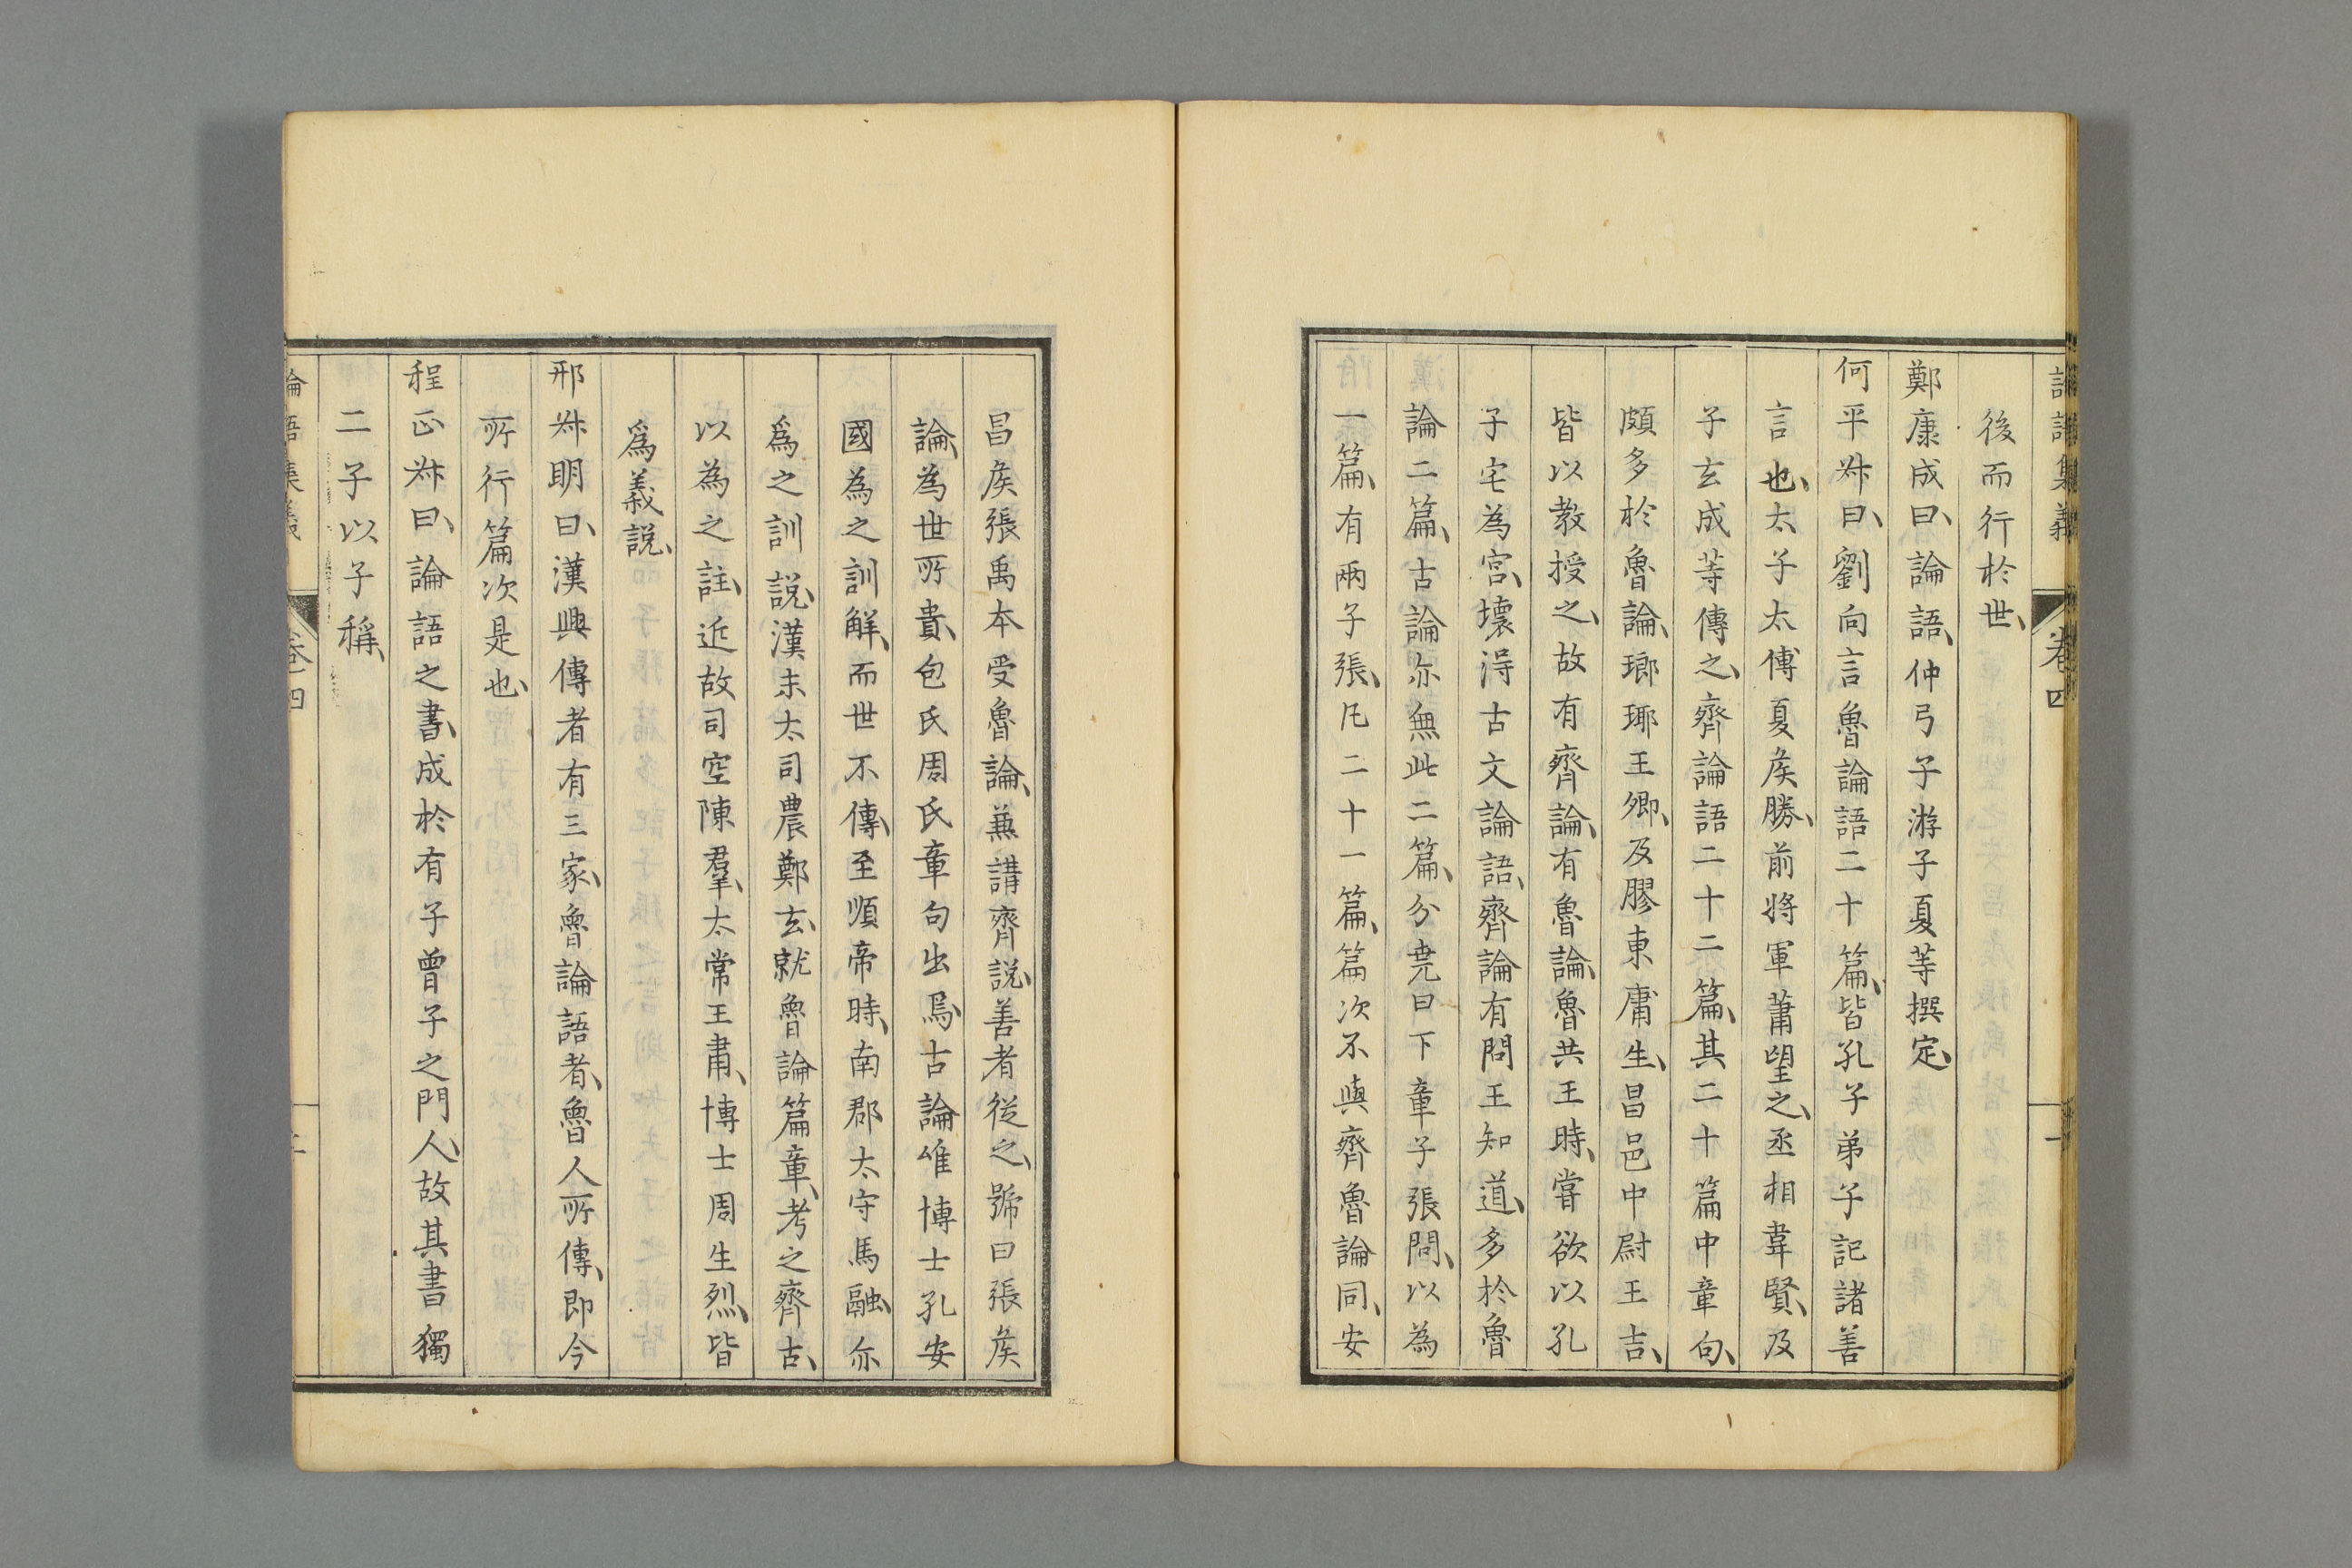 論語集義
卷四
一
後而行於世、
鄭康成曰、論語、仲弓子游子夏等撰定、
何平叔曰、劉向言魯論語二十篇、皆孔子弟子記諸善
言也、太子太傅夏矦勝、前將軍蕭望之、丞相韋賢、及
子玄成等傳之、齊論語二十二篇、其二十篇中章句、
頗多於魯論、瑯琊王卿、及膠東庸生、昌邑中尉王吉、
皆以教授之、故有齊論、有魯論、魯共王時、嘗欲以孔
子宅為宮、壞淂古文論語、齊論有問王知道、多於魯
論二篇、古論亦無此二篇、分堯曰下章子張問、以為
一篇、有兩子張、凡二十一篇、篇次不與齊魯論同、安
昌矦張禹本受魯論、兼講齊說、善者從之、號曰張矦
論、為世所貴、包氏周氏章句出焉、古論唯博士孔安
國為之訓解、而世不傳、至順帝時、南郡太守馬融、亦
爲之訓說、漢末太司農鄭玄、就魯論篇章、考之齊古、
以為之註、近故司空陳羣、太常王肅、博士周生烈、皆
爲義說、
邢叔明曰、漢興傳者有三家、魯論語者、魯人所傳、即今
所行篇次是也、
程正叔曰、論語之書、成於有子曾子之門人、故其書獨
二子以子稱、
論語集義
卷四